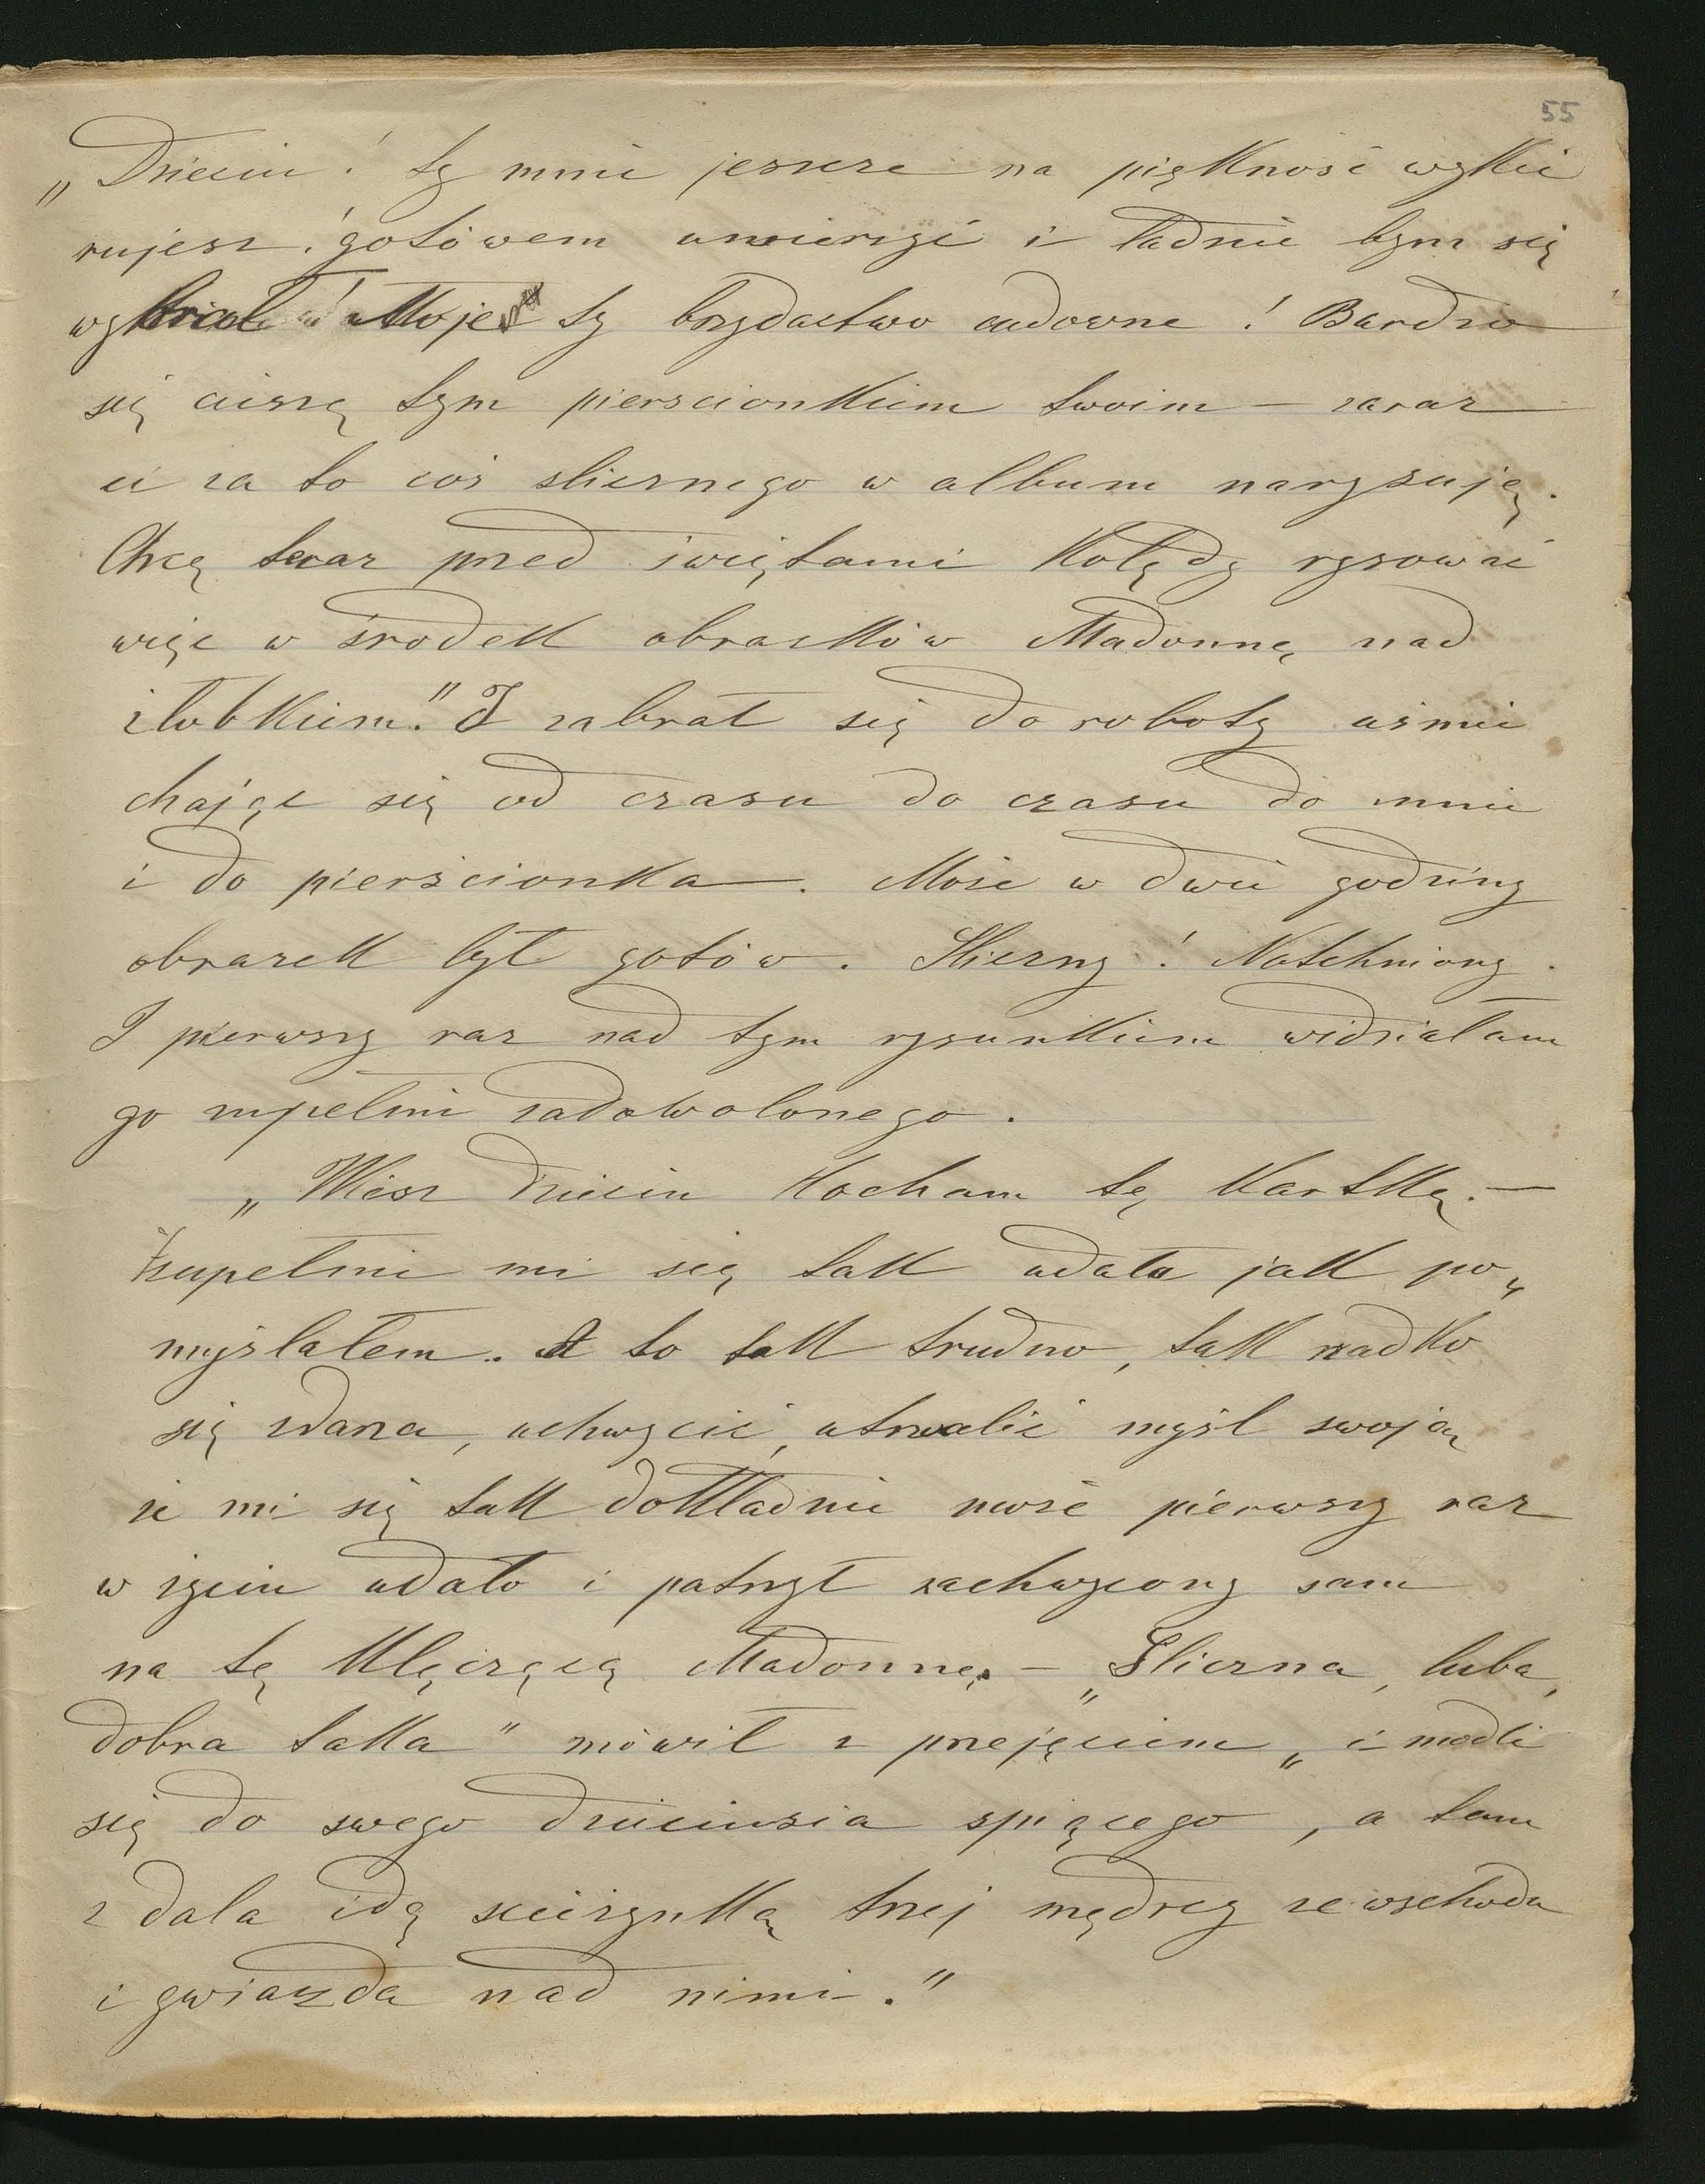 55
„Dziecin! ty mnie jeszcze na piękność wykie
rujesz! gotówem uwierzyć i ładnie bym się
wykrical! Moje ty brzydactwo cudowne! Bardzo
się cieszę tym pierscionkiem twoim — zaraz
ci za to coś slicznego w album narysuję.
Chcę teraz przed świętami Kolędy rysować
więc w środek obrazków Madonnę nad
żłobkiem." I zabrał się do roboty uśmie
chając się od czasu do czasu do mnie
i do pierścionka. Może w dwie godziny
obrazek był gotów. Sliczny! Natchniony.
I pierwszy raz nad tym rysunkiem widziałam
go zupełnie zadowolonego.
„Wiesz dziecin Kocham tę Kartkę. —
Zupełnie mi się tak udała jak po„
myślałem. A to tak trudno, tak rzadko
się zdarza, uchwycić, utrwalić myśl swoją
że mi się tak dokładnie może pierwszy raz
w życiu udało i patrzył zachwycony sam
na tę Klęczącą Madonnę. — „Sliczna, luba,
dobra taka" mówił z przejęciem „i modli
się do swego dzieciusia spiącego, a tam
z dala idą scieżynką trzej mędrcy ze wschodu
i gwiazda nad nimi."